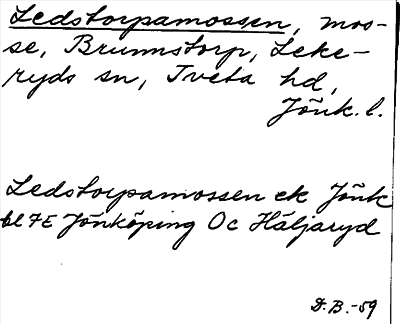 Ledstorpamossen, mos-
se, Brunnstorp, Leke-
ryds sn, Tveta hd,
Jönk. l.
Ledstorpamossen ek Jönk
bl 7E Jönköping Oc Häljaryd
D.B.-59